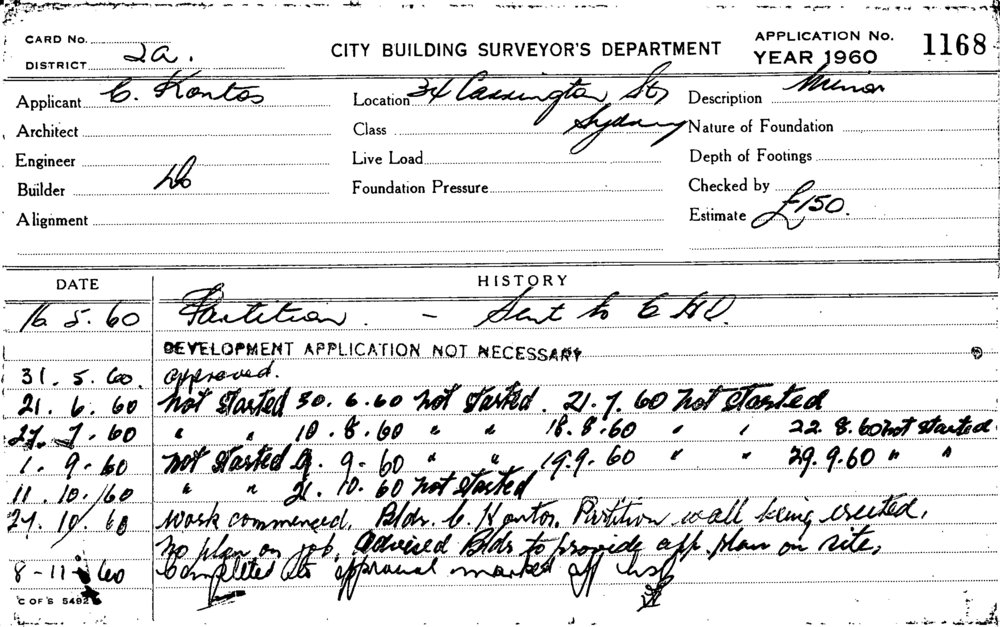 CARD No.
DISTRICT 2a.
CITY BUILDING SURVEYOR'S DEPARTMENT
APPLICATION No. 1168
YEAR 1960
Applicant C. Kontos
Location 34 Carrington St, Sydney
Description Minor
Architect
Class
Nature of Foundation
Engineer
Live Load
Depth of Footings
Builder Do
Foundation Pressure
Checked by
Alignment
Estimate £150.
DATE HISTORY
16. 5. 60 Partition. - Sent to C H O.
DEVELOPMENT APPLICATION NOT NECESSARY
31. 5. 60. approved.
21. 6. 60 not started 30. 6. 60 not started. 21. 7. 60 not started
27. 7. 60 " " 10. 8. 60 " " 18. 8. 60 " " 22. 8. 60 not started
1. 9. 60 not started 9. 9. 60 " " 19. 9. 60 " " 29. 9. 60 " "
11. 10. 60 " " 21. 10. 60 not started
27. 10. 60 work commenced. Bldr. C. Kontos. Partition wall being erected.
no plan on job. advised Bldr to provide app. plan on site.
8-11-60 Completed to approval marked off list
C OF S 5492